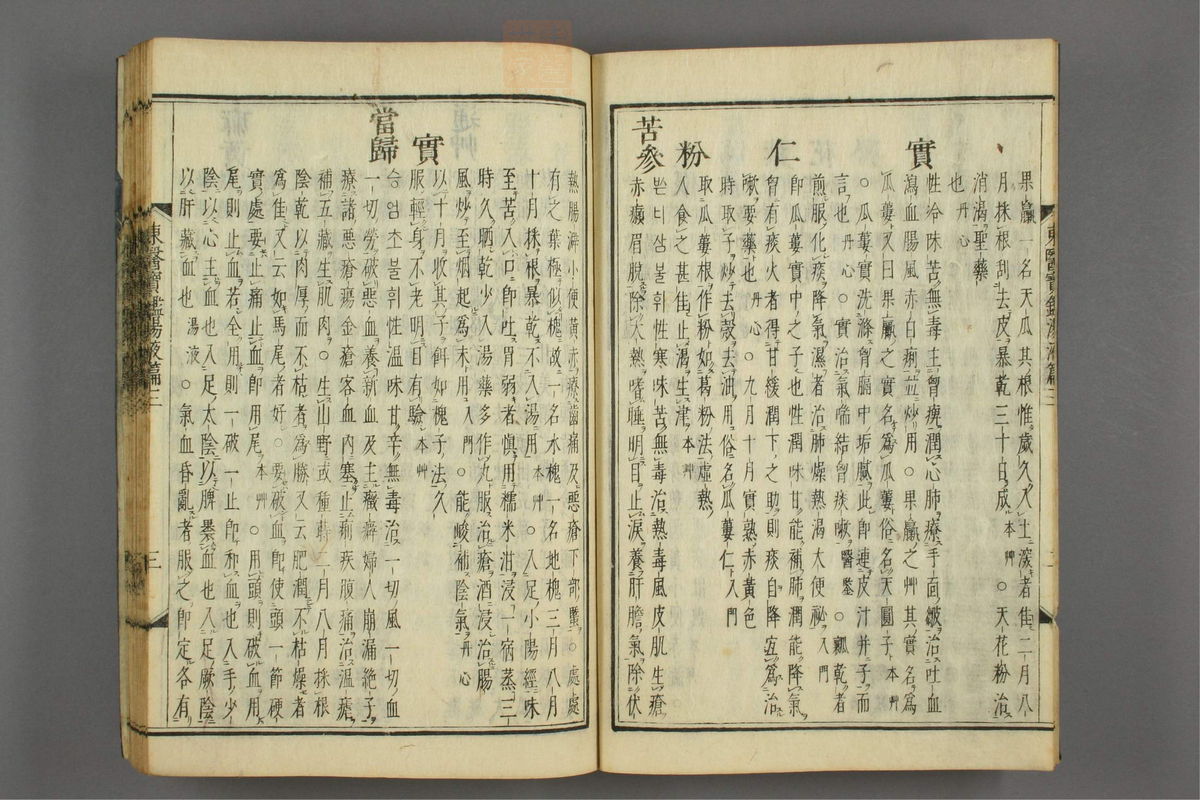 果蠃一名天瓜其根惟歲久入土深者佳二月八
月採根刮去皮暴乾三十日成本艸○天花粉治
消渴聖藥
也丹心
實
性冷味苦無毒主胷痺潤心肺療手面皺治吐血
瀉血腸風赤白痢並炒用○果蠃之艸其實名爲
瓜蔞又曰果蠃之實名爲瓜蔞俗名天圓子本艸
○瓜蔞實洗滌胷膈中垢膩此即連皮汁并子而
言也丹心○實治氣喘結胷痰嗽醫鑒○瓤乾者
煎服化痰降氣濕者治肺燥熱渴大便祕入門
仁
即瓜蔞實中之子也性潤味甘能補肺潤能降氣
胷有痰火者得甘緩潤下之助則痰自降宜爲治
嗽要藥也丹心○九月十月實熟赤黃色
時取子炒去殼去油用俗名瓜蔞仁入門
粉
取瓜蔞根作粉如葛粉法虛熱
人食之甚佳止渴生津本艸
苦參
쓴너삼불휘性寒味苦無毒治熱毒風皮肌生瘡
赤癩眉脫除大熱嗜睡明目止淚養肝膽氣除伏
熱腸澼小便黃赤療齒痛及惡瘡下部䘌○處處
有之葉極似槐故一名水槐一名地槐三月八月
十月採根暴乾不入湯用本艸○入足少陽經味
至苦入口即吐胃弱者愼用糯米泔浸一宿蒸三
時久晒乾少入湯藥多作丸服治瘡酒浸治腸
風炒至烟起爲末用入門○能峻補陰氣丹心
實
以十月收其子餌如槐子法久
服輕身不老明目有驗本艸
當歸
승엄초불휘性溫味甘辛無毒治一切風一切血
一切勞破惡血養新血及主癥癖婦人崩漏絶子
療諸惡瘡瘍金瘡客血內塞止痢疾腹痛治溫瘧
補五藏生肌肉○生山野或種蒔二月八月採根
陰乾以肉厚而不枯者爲勝又云肥潤不枯燥者
爲佳又云如馬尾者好○要破血即使頭一節硬
實處要止痛止血即用尾本艸○用頭則破血用
尾則止血若全用則一破一止即和血也入手少
陰以心主血也入足太陰以脾褁血也入足厥陰
以肝藏血也湯液○氣血昏亂者服之即定各有
東醫寶鑑湯液篇三
三
東醫寶鑑湯液篇三